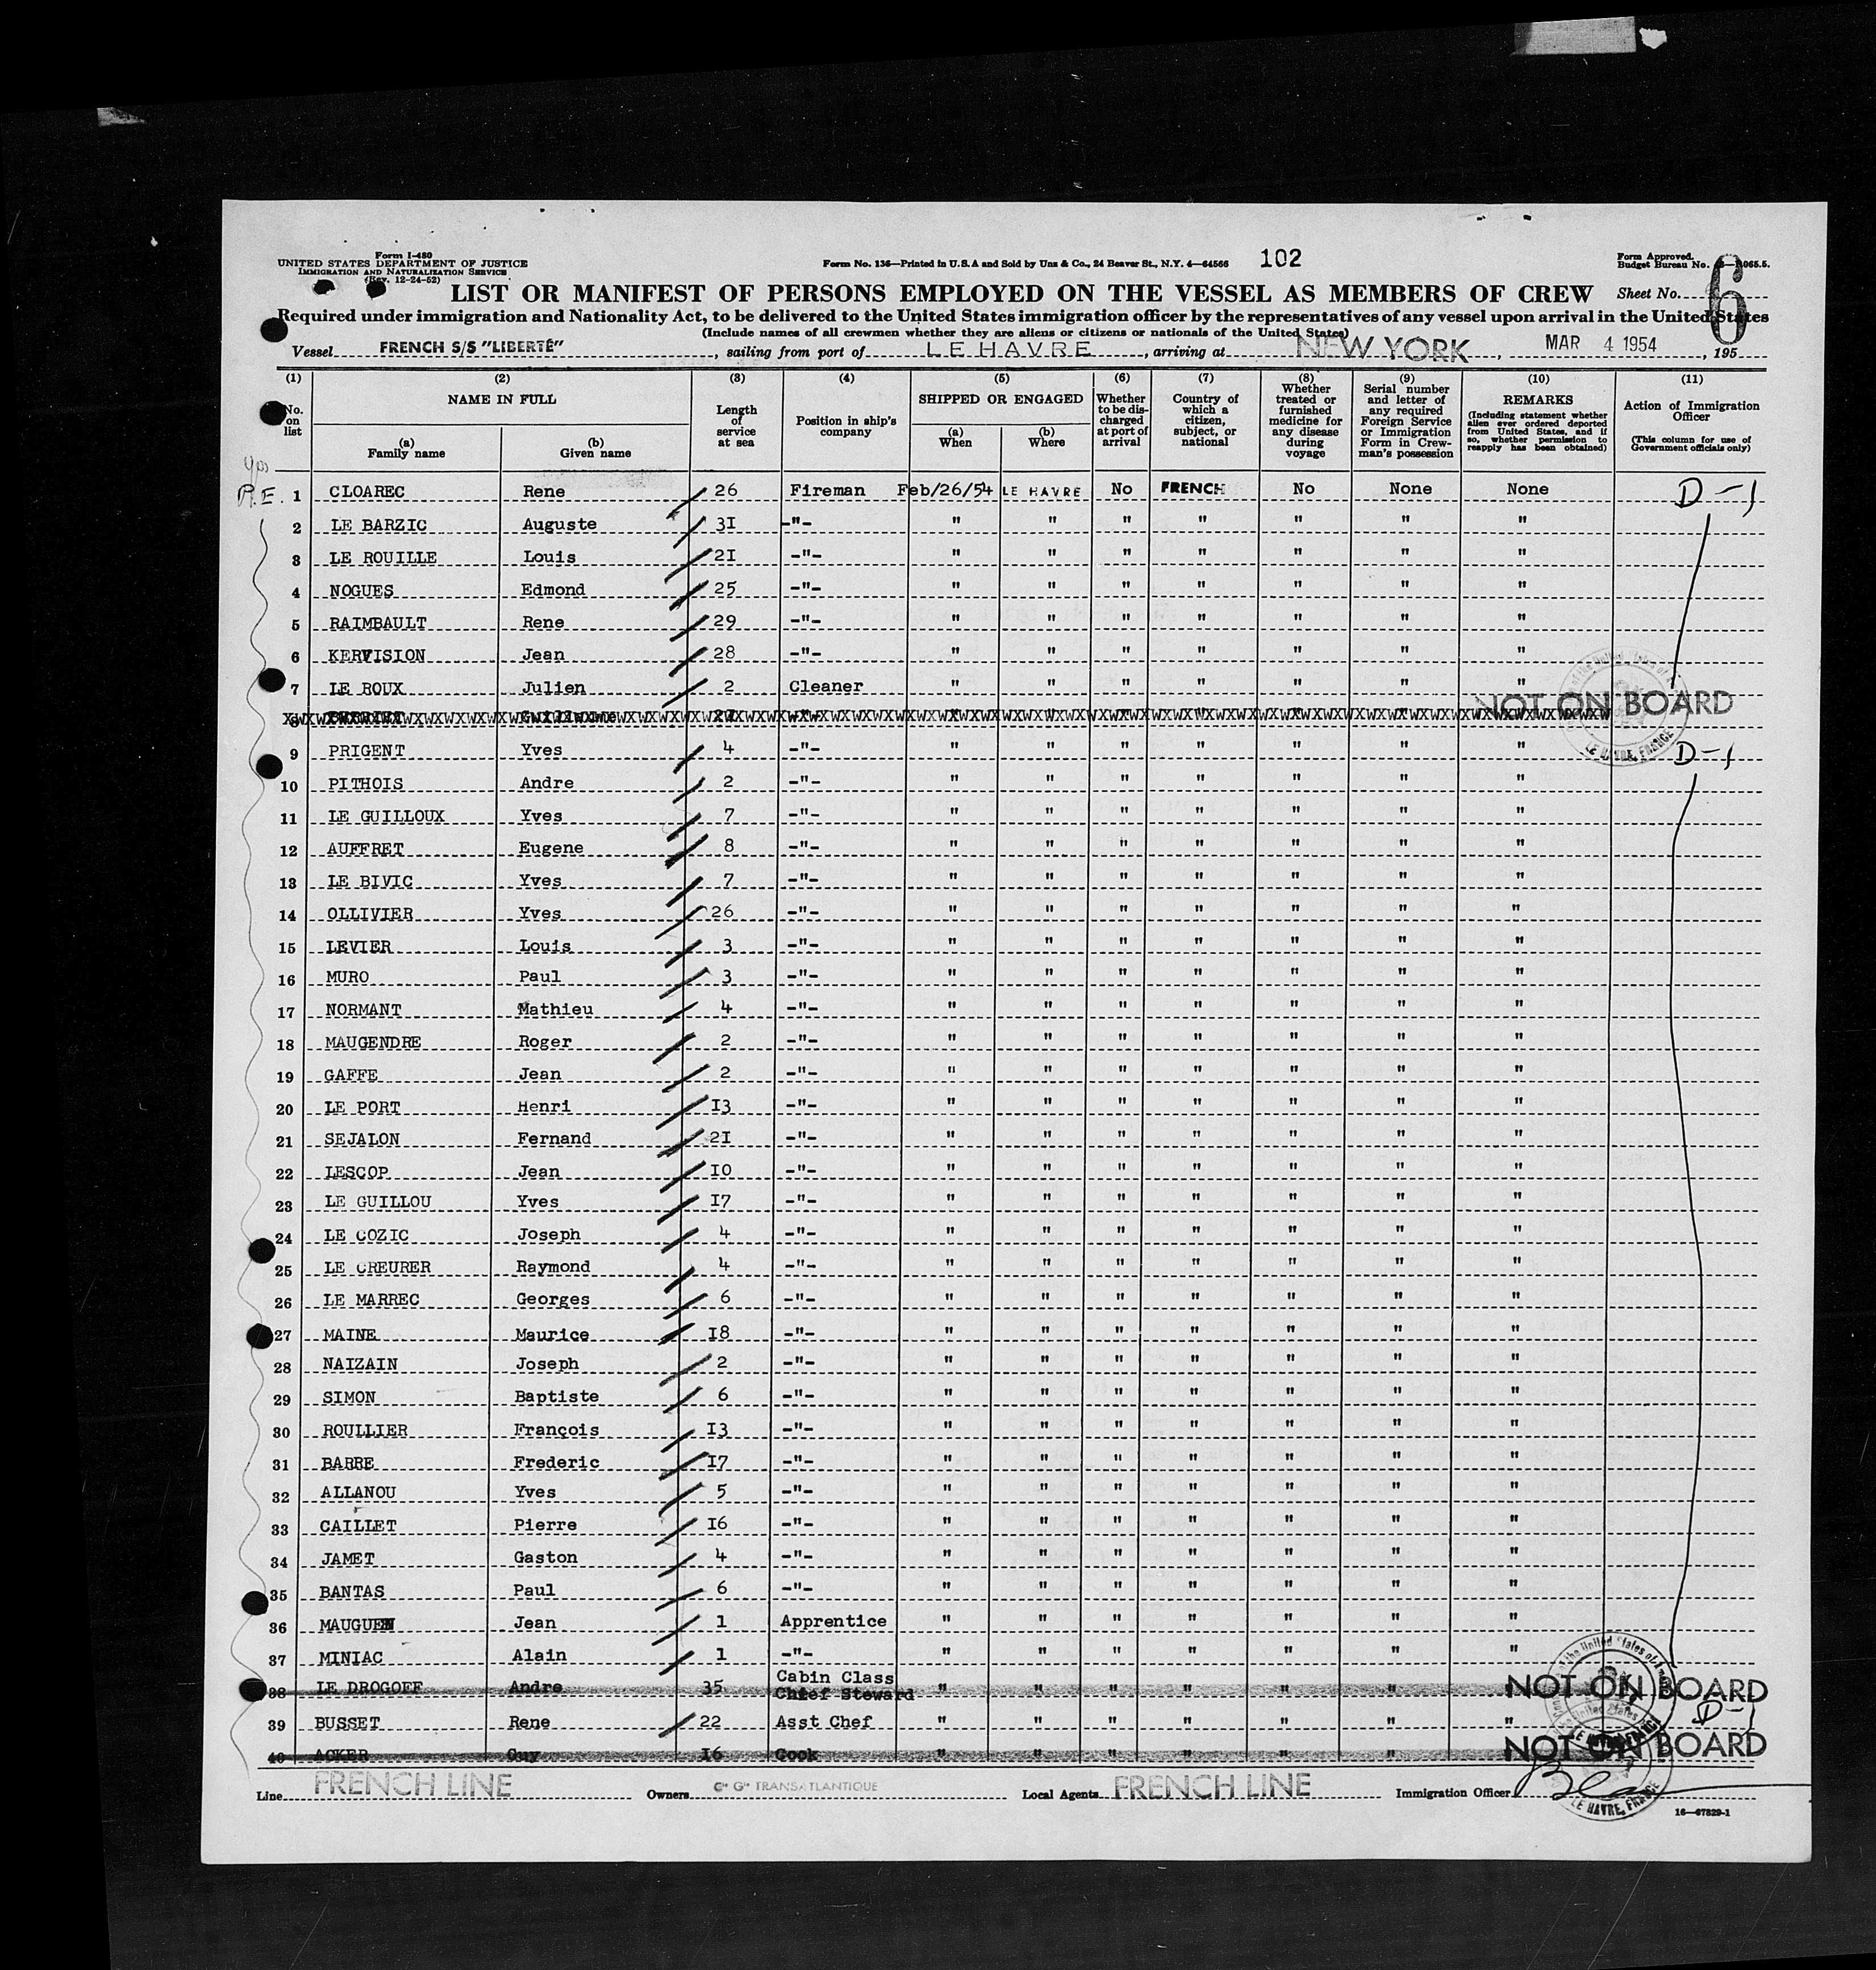 Form I-480
UNITED STATES DEPARTMENT OF JUSTICE
IMMIGRATION AND NATURALIZATION SERVICE
(Rev. 12-24-52)
Form No. 136—Printed in U.S.A and Sold by Unz & Co., 24 Beaver St., N.Y. 4—64566
102
Form Approved.
Budget Bureau No.
LIST OR MANIFEST OF PERSONS EMPLOYED ON THE VESSEL AS MEMBERS OF CREW
Sheet No. 6
Required under immigration and Nationality Act, to be delivered to the United States immigration officer by the representatives of any vessel upon arrival in the United States
(Include names of all crewmen whether they are aliens or citizens or nationals of the United States)
Vessel FRENCH S/S "LIBERTÉ", sailing from port of LE HAVRE, arriving at NEW YORK, MAR 4 1954, 195
(1) (2) (3) (4) (5) (6) (7) (8) (9) (10) (11)
No. on list
NAME IN FULL
(a) Family name
(b) Given name
Length of service at sea
Position in ship's company
SHIPPED OR ENGAGED
(a) When
(b) Where
Whether to be discharged at port of arrival
Country of which a citizen, subject, or national
Whether treated or furnished medicine for any disease during voyage
Serial number and letter of any required Foreign Service or Immigration Form in Crewman's possession
REMARKS
(Including statement whether alien ever ordered deported from United States, and if so, whether permission to reapply has been obtained)
Action of Immigration Officer
(This column for use of Government officials only)
1 CLOAREC Rene 26 Fireman Feb/26/54 LE HAVRE No FRENCH No None None D-1
2 LE BARZIC Auguste 31 -"- " " " " " " "
3 LE ROUILLE Louis 21 -"- " " " " " " "
4 NOGUES Edmond 25 -"- " " " " " " "
5 RAIMBAULT Rene 29 -"- " " " " " " "
6 KERVISION Jean 28 -"- " " " " " " "
7 LE ROUX Julien 2 Cleaner " " " " " " "
8 NOT ON BOARD
9 PRIGENT Yves 4 -"- " " " " " " " D-1
10 PITHOIS Andre 2 -"- " " " " " " "
11 LE GUILLOUX Yves 7 -"- " " " " " " "
12 AUFFRET Eugene 8 -"- " " " " " " "
13 LE BIVIC Yves 7 -"- " " " " " " "
14 OLLIVIER Yves 26 -"- " " " " " " "
15 LEVIER Louis 3 -"- " " " " " " "
16 MURO Paul 3 -"- " " " " " " "
17 NORMANT Mathieu 4 -"- " " " " " " "
18 MAUGENDRE Roger 2 -"- " " " " " " "
19 GAFFE Jean 2 -"- " " " " " " "
20 LE PORT Henri 13 -"- " " " " " " "
21 SEJALON Fernand 21 -"- " " " " " " "
22 LESCOP Jean 10 -"- " " " " " " "
23 LE GUILLOU Yves 17 -"- " " " " " " "
24 LE COZIC Joseph 4 -"- " " " " " " "
25 LE CREURER Raymond 4 -"- " " " " " " "
26 LE MARREC Georges 6 -"- " " " " " " "
27 MAINE Maurice 18 -"- " " " " " " "
28 NAIZAIN Joseph 2 -"- " " " " " " "
29 SIMON Baptiste 6 -"- " " " " " " "
30 ROULLIER François 13 -"- " " " " " " "
31 BARRE Frederic 17 -"- " " " " " " "
32 ALLANOU Yves 5 -"- " " " " " " "
33 CAILLET Pierre 16 -"- " " " " " " "
34 JAMET Gaston 4 -"- " " " " " " "
35 BANTAS Paul 6 -"- " " " " " " "
36 MAUGUEN Jean 1 Apprentice " " " " " " "
37 MINIAC Alain 1 -"- " " " " " " "
38 LE DROGOFF Andre 35 Cabin Class Chief Steward " " " " " " NOT ON BOARD
39 BUSSET Rene 22 Asst Chef " " " " " " " D-1
40 ACKER Guy 16 Cook " " " " " " NOT ON BOARD
Line FRENCH LINE Owners Cie Gle TRANSATLANTIQUE Local Agents FRENCH LINE Immigration Officer
LE HAVRE, FRANCE
16—67829-1